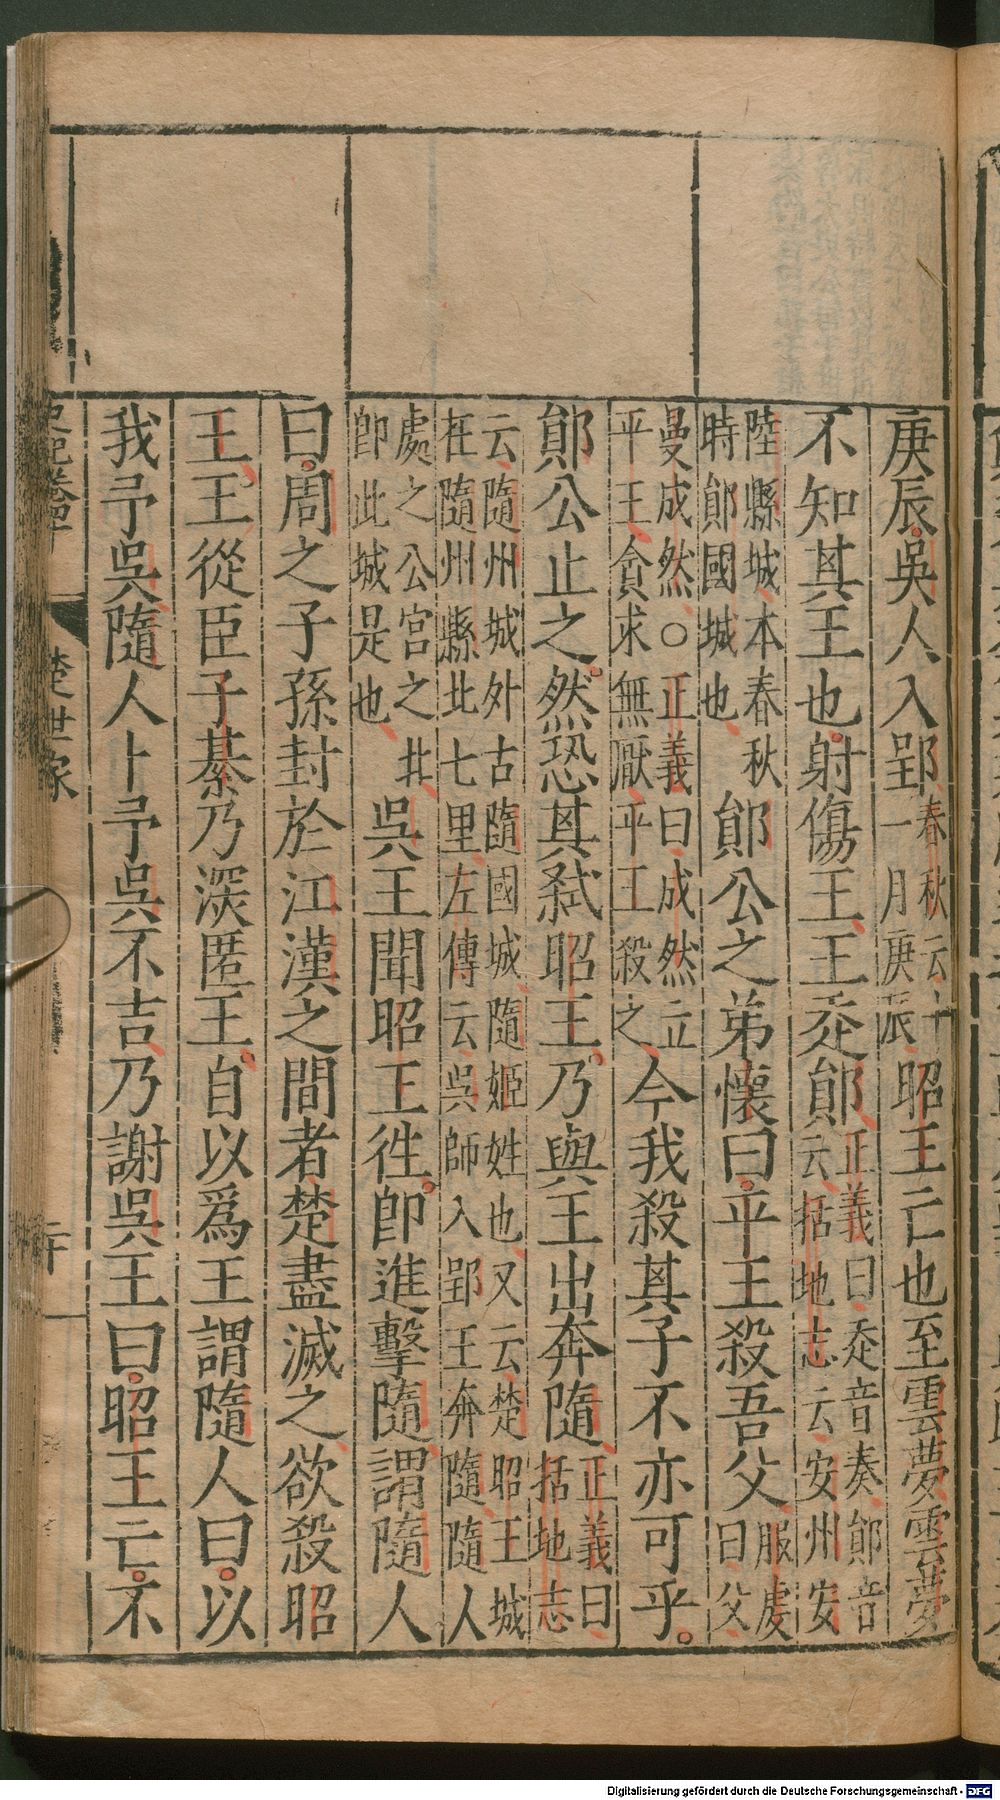 庚辰吳人入郢春秋云十一月庚辰昭王亡也至雲夢雲夢
不知其王也射傷王王走鄖正義曰走音奏鄖音云括地志云安州安
陸縣城本春秋時鄖國城也鄖公之弟懷曰平王殺吾父服虔曰父
曼成然○正義曰成然立平王貪求無厭平王殺之今我殺其子不亦可乎
鄖公止之然恐其弑昭王乃與王出奔隨正義曰括地志
云隨州城外古隨國城隨姬姓也又云楚昭王城在隨州縣北七里左傳云吳師入郢王奔隨隨人
處之公宮之北即此城是也吳王聞昭王徃即進擊隨謂隨人
曰周之子孫封於江漢之間者楚盡滅之欲殺昭
王王從臣子綦乃深匿王自以爲王謂隨人曰以
我予吳隨人卜予吳不吉乃謝吳王曰昭王亡不
史記卷四十
楚世家
二十
Digitalisierung gefördert durch die Deutsche Forschungsgemeinschaft - DFG